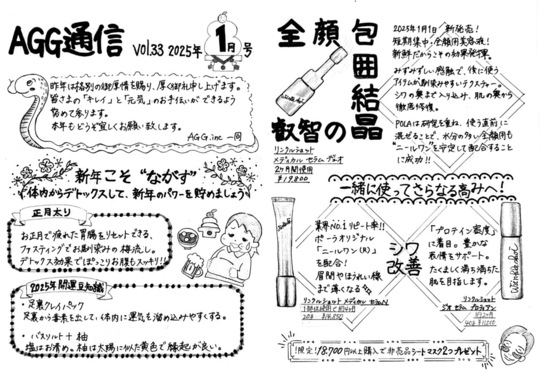 AGG通信 vol.33 2025年 1月号
昨年は格別の御厚情を賜り、厚く御礼申し上げます。
皆さまの「キレイ」と「元気」のお手伝いができるよう
努めて参ります。
本年もどうぞ宜しくお願い致します。
AGG.inc 一同
新年こそ“ながす”
体内からデトックスして、新年のパワーを貯めましょう
正月太り
お正月で疲れた胃腸をリセットできる、
ファスティングでお馴染みの梅流し。
デトックス効果でぽっこりお腹もスッキリ!!
2025年開運豆知識
・足裏クレイパック
足裏から毒素を出して、体内に運気を溜め込みやすくする。
・バスソルト+柚
塩はお清め。柚は太陽に似た黄色で縁起が良い。
全顔包囲結晶
叡智の
リンクルショット
メディカル セラム デュオ
2ヶ月間使用
¥19,800
2025年1月1日 新発売!
短期集中・全顔用美容液!
新鮮だからこその効果発揮。
みずみずしい感触で、後に使う
アイテムが馴染みやすいテクスチャー。
シワの奥まで入り込み、肌の奥から
徹底修復。
POLAは研究を重ね、使う直前に
混ぜることで、水分の多い全顔用も
“ニールワン”を安定して配合すること
に成功!!
一緒に使ってさらなる高みへ!
業界No.1リピート率!!
ポーラオリジナル
「ニールワン(R)」
を配合!
眉間やほうれい線
まで薄くなる
リンクルショット メディカル セラム
シワ
改善
「プロテイン密度」
に着目。豊かな
表情をサポート。
たくましく満ち満ちた
肌を目指します。
リンクルショット
ジオ セラム プロティアン
限定!18,700円以上購入で非売品シートマスク2つプレゼント